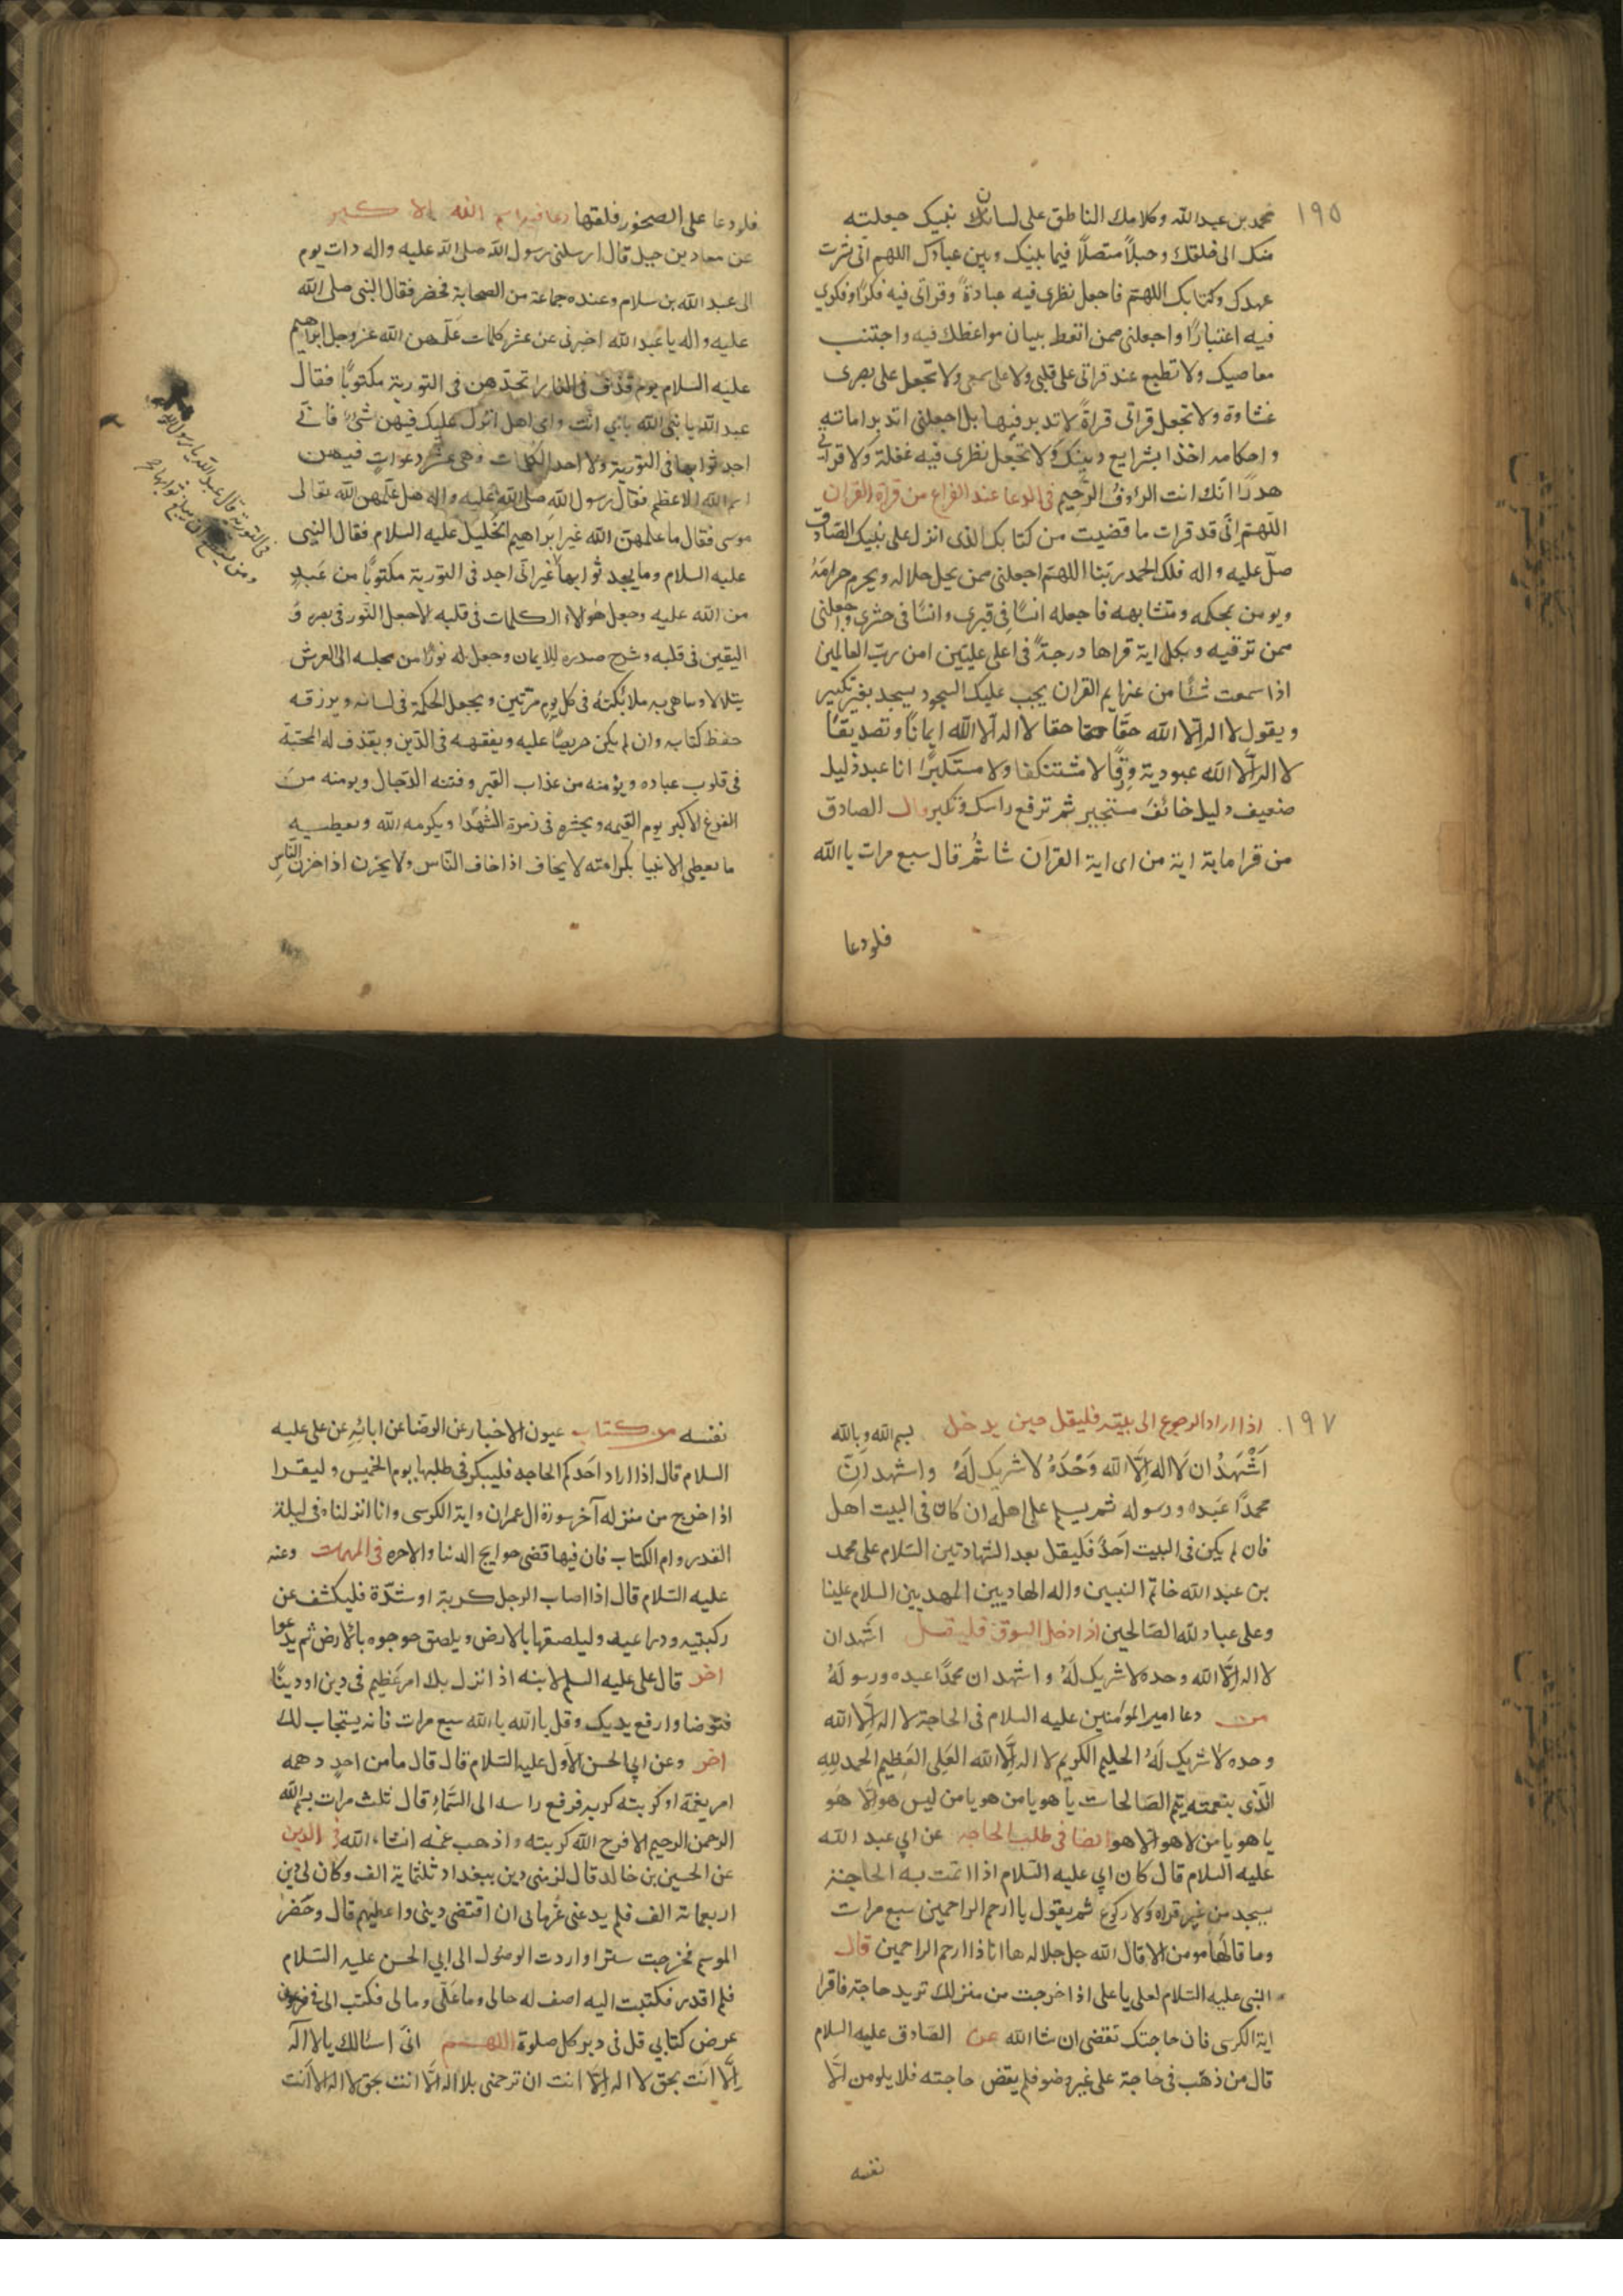 ١٩٥
محمد بن عبدالله وكلامك الناطق على لسان نبيك جعلته
منك الى خلقك وحبلاً متصلاً فيما بينك وبين عبادك اللهم انى نشرت
عهدك وكتابك اللهم فاجعل نظرى فيه عبادةً وقرآتى فيه فكرًا وفكرى
فيه اعتبارًا واجعلنى ممن اتعظ ببيان مواعظك فيه واجتنب
معاصيك ولا تطبع عند قرآتى على قلبى ولا على سمعى ولا تجعل على بصرى
غشاوة ولا تجعل قرآتى قراةً لا تدبر فيها بل اجعلنى اتدبر اياته
واحكامه اخذا بشرايع دينك ولا تجعل نظرى فيه غفلة ولا قرآتى
هدرًا انّك انت الرؤف الرحيم فى الدعا عند الفراغ من قراة القران
اللّهم انّى قد قرات ما قضيت من كتابك الذى انزل على نبيك الصادق
صلّ عليه واله فلك الحمد ربّنا اللهم اجعلنى ممن يحل حلاله ويحرم حرامهُ
ويومن بمحكمه ومتشابهه فاجعله انسًا فى قبرى وانسًا فى حشرى واجعلنى
ممن ترقيه بكل اية قراها درجةً فى اعلى عليّين امن ربّ العالمين
اذا سمعت شئًا من عزايم القران يجب عليك السجود يسجد بغير تكبير
ويقول لا اله الّا الله حقًا حقا حقا لا اله الّا الله ايمانًا وتصديقًا
لا اله الّا الله عبودية ورقًّا لا مستنكفا ولا مستكبرًا انا عبد ذليل
ضعيف ذليل خائف مستجير ثم ترفع راسك وتكبر قال الصادق
من قرا ماية اية من اى اية القران شا ثم قال سبع مرات يا الله
فلودعا
فلودعا على الصخور فلقها دعا فيه اسم الله الاكبر
عن معاد بن جبل قال ارسلنى رسول الله صلى الله عليه واله ذات يوم
الى عبد الله بن سلام وعنده جماعة من الصحابة فحضر فقال النبى صلى الله
عليه واله يا عبد الله اخبرنى عن عشر كلمات علّمهن الله عز وجل ابراهيم
عليه السلام يوم قذف فى النار اتجدهن فى التورية مكتوبًا فقال
عبد الله يا نبى الله بابي انت وامى هل انزل عليك فيهن شئ فانّى
اجد ثوابها فى التورية ولا اجد الكلمات وهى عشر دعوات فيهن
اسم الله الاعظم فقال رسول الله صلى الله عليه واله هل علّمهن الله تعالى
موسى فقال ما علمهن الله غير ابراهيم الخليل عليه السلام فقال النبى
عليه السلام وما يجد ثوابها غير انّى اجد فى التورية مكتوبًا من عبدٍ
من الله عليه وجعل هولاء الكلمات فى قلبه الا جعل النّور فى بصره و
اليقين فى قلبه وشرح صدره للايمان وجعل له نورًا من مجلسه الى العرش
يتلالا وباهى به ملائكته فى كل يوم مرّتين ويجعل الحكمة فى لسانه ويرزقه
حفظ كتابه وان لم يكن حريصًا عليه ويفقهه فى الدّين ويقذف له المحبّة
فى قلوب عباده ويؤمنه من عذاب القبر وفتنه الدّجال ويومنه من
الفزع الاكبر يوم القيمه ويحشره فى زمرة الشهدا ويكرمه الله ويعطيه
ما يعطى الانبيا بكرامته لا يخاف اذا خاف النّاس ولا يحزن اذا حزن النّاس
فى التورية قال عبد الله يا رسول الله
١٩٧
اذا اراد الرجوع الى بيته فليقل حين يدخل بسم الله وبالله
اَشْهَدُ ان لا اله الّا الله وَحْدَهُ لا شريك لَهُ واشهد انّ
محمدًا عبده ورسوله ثم يسلم على اهله ان كان فى البيت اهل
فان لم يكن فى البيت احدٌ فليقل بعد الشهادتين السّلام على محمد
بن عبد الله خاتم النبيين واله الهاديين المهديين السلام علينا
وعلى عباد لله الصّالحين اذا دخل السوق فليقل اشهد ان
لا اله الّا الله وحده لا شريك لَهُ واشهد ان محمدًا عبده ورسولهُ
من دعا امير المؤمنين عليه السلام فى الحاجة لا اله الّا الله
وحده لا شريك لَهُ الحليم الكريم لا اله الّا الله العَلى العَظيم الحمد للهِ
الّذى بنعمته يتم الصّالحات يا هو يا من هو يا من ليس هو الّا هُو
يا هو يا من لا هو الا هو ايضا فى طلب الحاجه عن ابي عبد الله
عليه السلام قال كان ابي عليه السّلام اذا المت به الحاجة
يسجد من غير قراه ولا ركوع ثم يقول يا ارحم الراحمين سبع مرات
وما قالها مومن الا قال الله جل جلاله ها انا ذا ارحم الراحمين قال
النبى عليه السّلام لعلى يا على اذا خرجت من منزلك تريد حاجة فاقرا
اية الكرسى فان حاجتك تقضى ان شا الله عن الصّادق عليه السلام
قال من ذهب فى حاجة على غير وضو فلم يقض حاجته فلا يلومن الّا
نفسه
نفسه من كتاب عيون الاخبار عن الرضا عن ابائهِ عن على عليه
السلام قال اذا اراد احدكم الحاجه فليبكر فى طلبها يوم الخميس وليقرا
اذا خرج من منزله آخر سورة ال عمران واية الكرسى وانا انزلناه فى ليلة
القدر وام الكتاب فان فيها قضى حوايج الدنيا والاخره فى المهمات وعنه
عليه السّلام قال اذا اصاب الرجل كربة او شدّة فليكشف عن
ركبتيه وذراعيه وليلصقها بالارض ويلصق جوجوه بالارض ثم يدعوا
اخر قال على عليه السلم لابنه اذا نزل بك امر عَظيم فى دين او دنيًا
فتوضا وارفع يديك وقل يا الله يا الله سبع مرات فانه يستجاب لك
اخر وعن ابي الحسن الاول عليه السّلام قال قال ما من احدٍ دهمه
امر يغمّه او كربته كربه فرفع راسه الى السّماءِ قال ثلث مرات بسم الله
الرحمن الرحيم الا فرج الله كربته واذهب غمه انشاء الله فى الدين
عن الحسين بن خالد قال لزمنى دين ببغداد ثلثماية الف وكان لى دين
اربعماية الف فلم يدعنى غرماى ان اقتضى دينى واعطيهم قال وحضر
الموسم فخرجت ستترا واردت الوصُول الى ابي الحسن عليه السّلام
فلم اقدر فكتبت اليه اصف له حالى وما عَلّى ومالى فكتب الى فى
عرض كتابي قل فى دبر كل صلوة اللهم انّى اسالك يا لا اله
الّا انت بحق لا اله الّا انت ان ترحمنى بلا اله الّا انت بحق لا اله الا انت